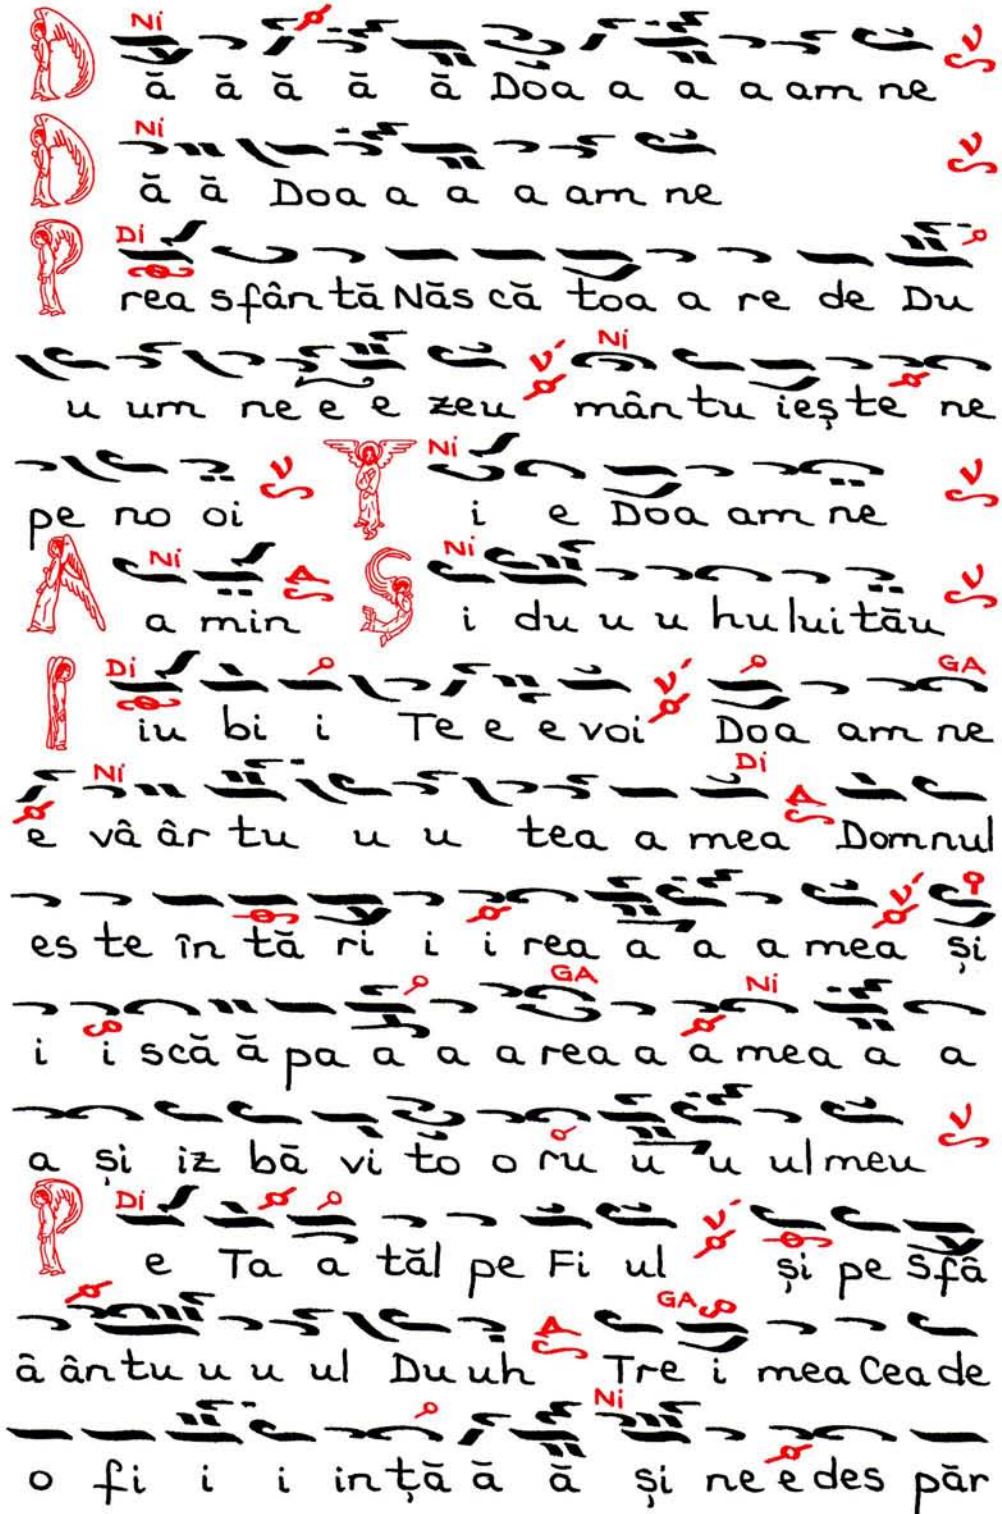 Ni
D ă ă ă ă ă Doa a a a am ne
Ni
D ă ă Doa a a a am ne
Di
P rea sfân tă Năs că toa a re de Du
Ni
u um ne e e zeu mân tu ieş te ne
Ni
pe no oi T i e Doa am ne
Ni Ni
A a min S i du u u hu lui tău
Di GA
I iu bi i Te e e voi Doa am ne
Ni Di
e vâ âr tu u u tea a mea Domnul
es te în tă ri i i rea a a a mea şi
GA Ni
i i scă ă pa a a a rea a a mea a a
a şi iz bă vi to o ru u u ul meu
Di
P e Ta a tăl pe Fi ul şi pe Sfâ
GA
â ân tu u u ul Du uh Tre i mea Cea de
Ni
o fi i i in ţă ă ă şi ne e des păr